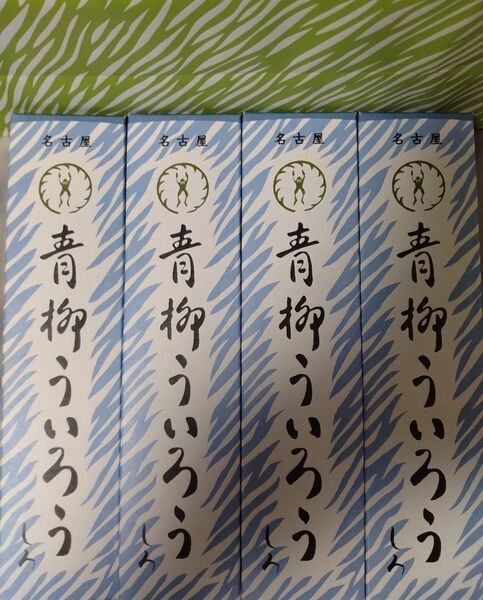 名古屋
青柳ういろう
しろ
名古屋
青柳ういろう
しろ
名古屋
青柳ういろう
しろ
名古屋
青柳ういろう
しろ